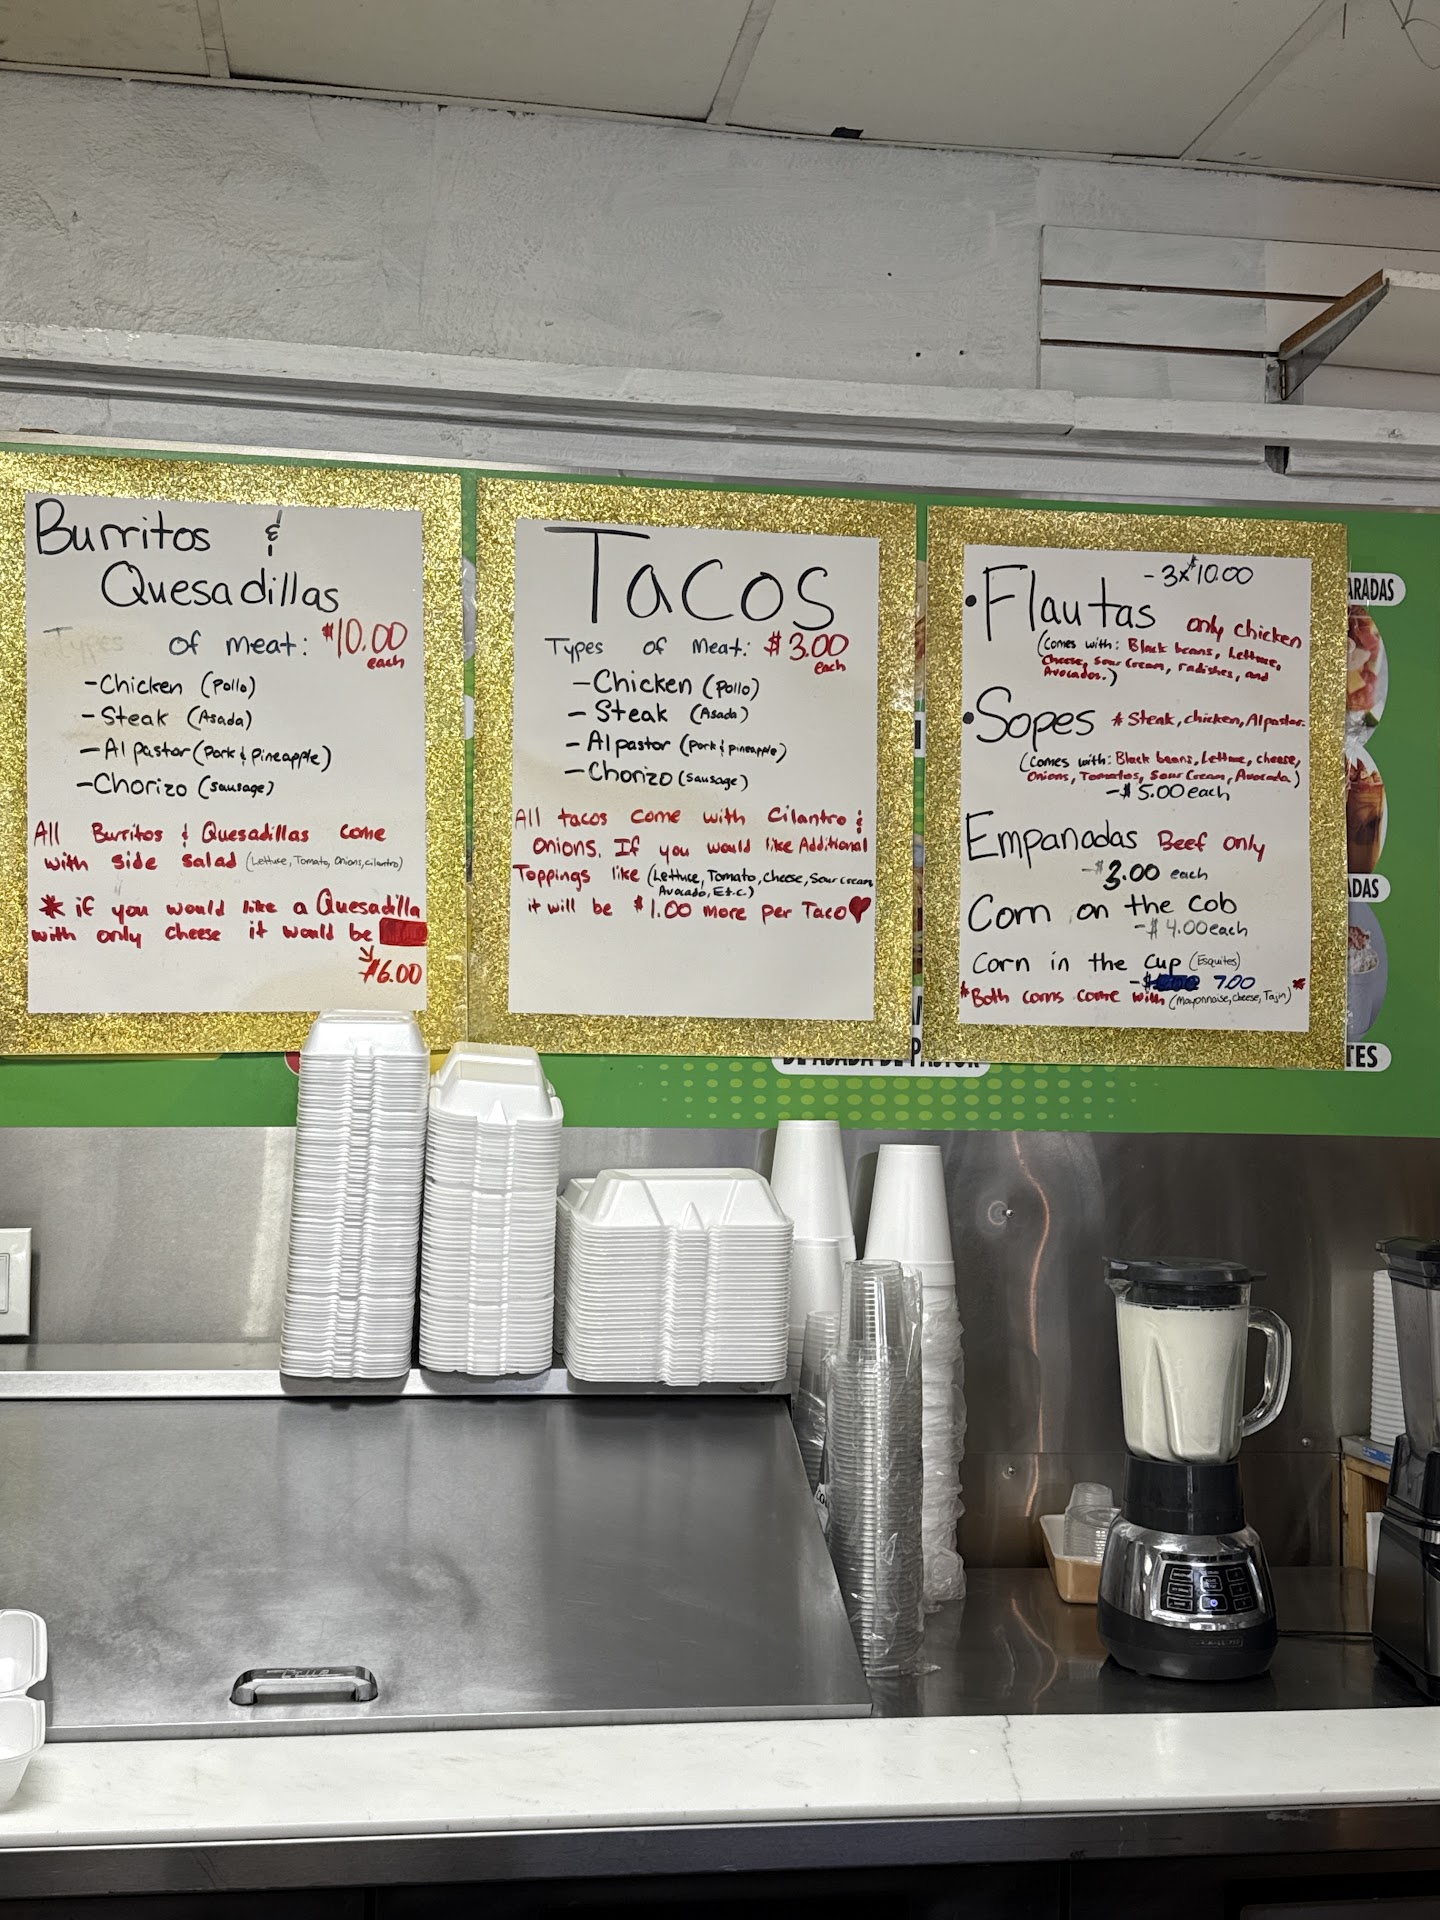 Burritos &
Quesadillas
Types of meat: $10.00
each
-Chicken (Pollo)
-Steak (Asada)
-Al pastor (Pork & Pineapple)
-Chorizo (sausage)
All Burritos & Quesadillas come
with side salad (Lettuce, Tomato, Onions, cilantro)
* if you would like a Quesadilla
with only cheese it would be
$6.00
Tacos
Types of Meat: $3.00
each
-Chicken (Pollo)
- Steak (Asada)
- Al pastor (Pork & pineapple)
-Chorizo (sausage)
All tacos come with Cilantro &
Onions. If you would like Additional
Toppings like (Lettuce, Tomato, Cheese, Sour Cream
Avocado, Et.c.)
it will be $1.00 more per Taco
- 3x$10.00
•Flautas only chicken
(Comes with: Black beans, Lettuce,
Cheese, Sour Cream, radishes, and
Avocados.)
•Sopes * Steak, chicken, Al pastor.
(Comes with: Black beans, Lettuce, cheese,
Onions, Tomatos, Sour Cream, Avocada)
-$5.00 each
Empanadas Beef only
-$3.00 each
Corn on the cob
-$4.00 each
Corn in the cup (Esquites)
-$ 7.00
*Both corns come with (Mayonnaise, cheese, Tajin)*
ARADAS
ADAS
TES
DE ASADA DE PASTOR